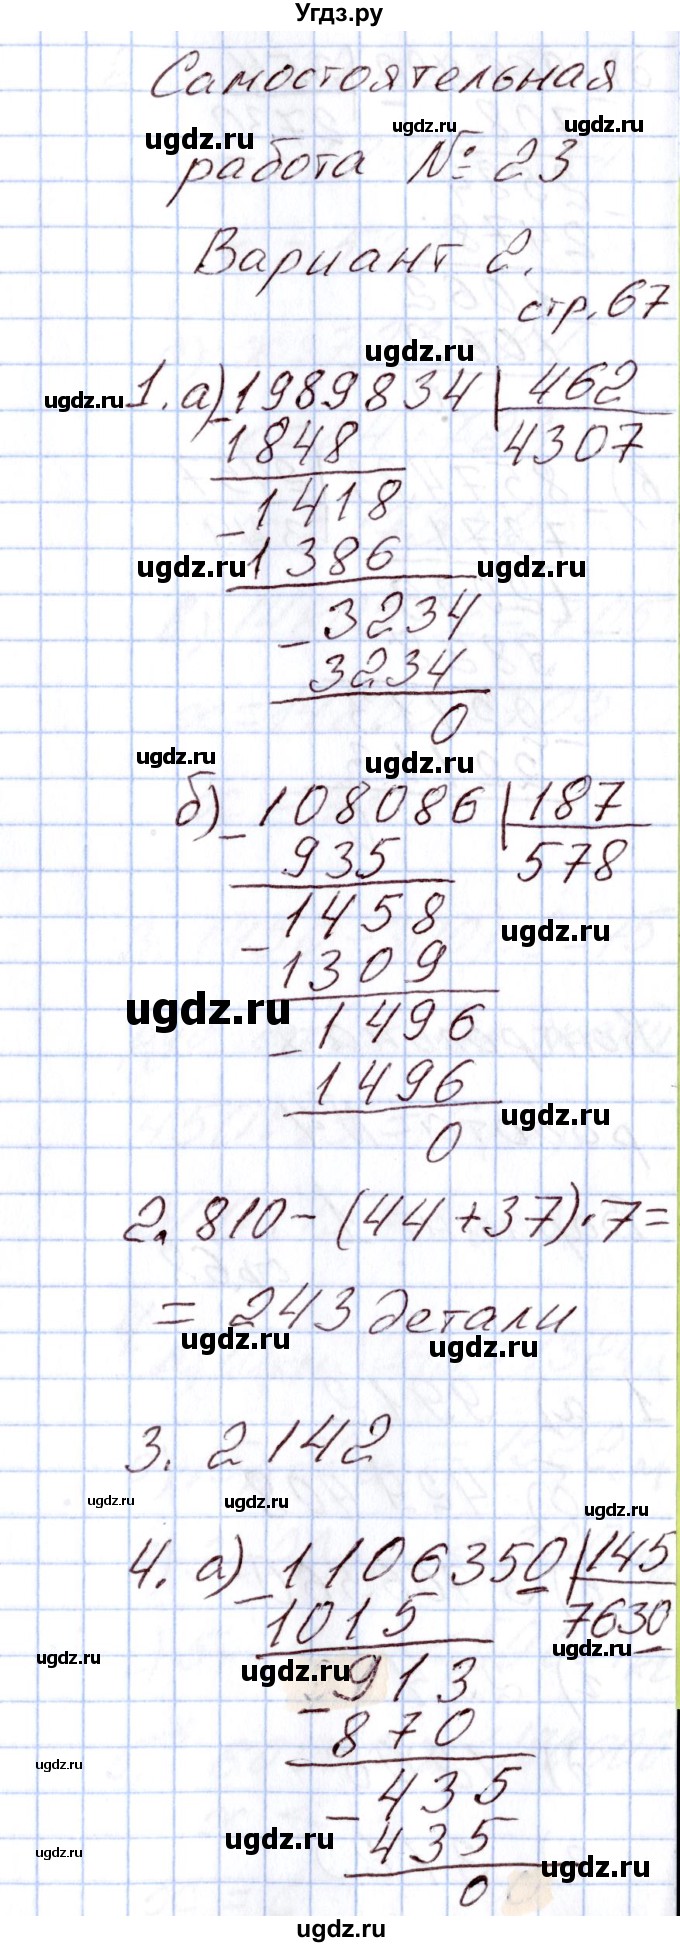 Угдз.ру
Самостоятельная
ugdz.ru ugdz.ru ugdz.ru
работа № 23
Вариант 2.
стр. 67
ugdz.ru
1. а) 1989834 | 462
ugdz.ru
- 1848 4307
1418
- 1386
ugdz.ru ugdz.ru
3234
- 3234
0
ugdz.ru ugdz.ru
б) 108086 | 187
- 935 578
1458
ugdz.ru
- 1309
ugdz.ru
1496
- 1496
ugdz.ru
0
2. 810 - (44 + 37) · 7 =
= 243 детали
ugdz.ru ugdz.ru
3. 2142
ugdz.ru ugdz.ru ugdz.ru
4. а) 1106350 | 145
- 1015 7630
ugdz.ru ugdz.ru ugdz.ru
913
- 870
ugdz.ru
435
- 435
ugdz.ru ugdz.ru ugdz.ru
0
ugdz.ru